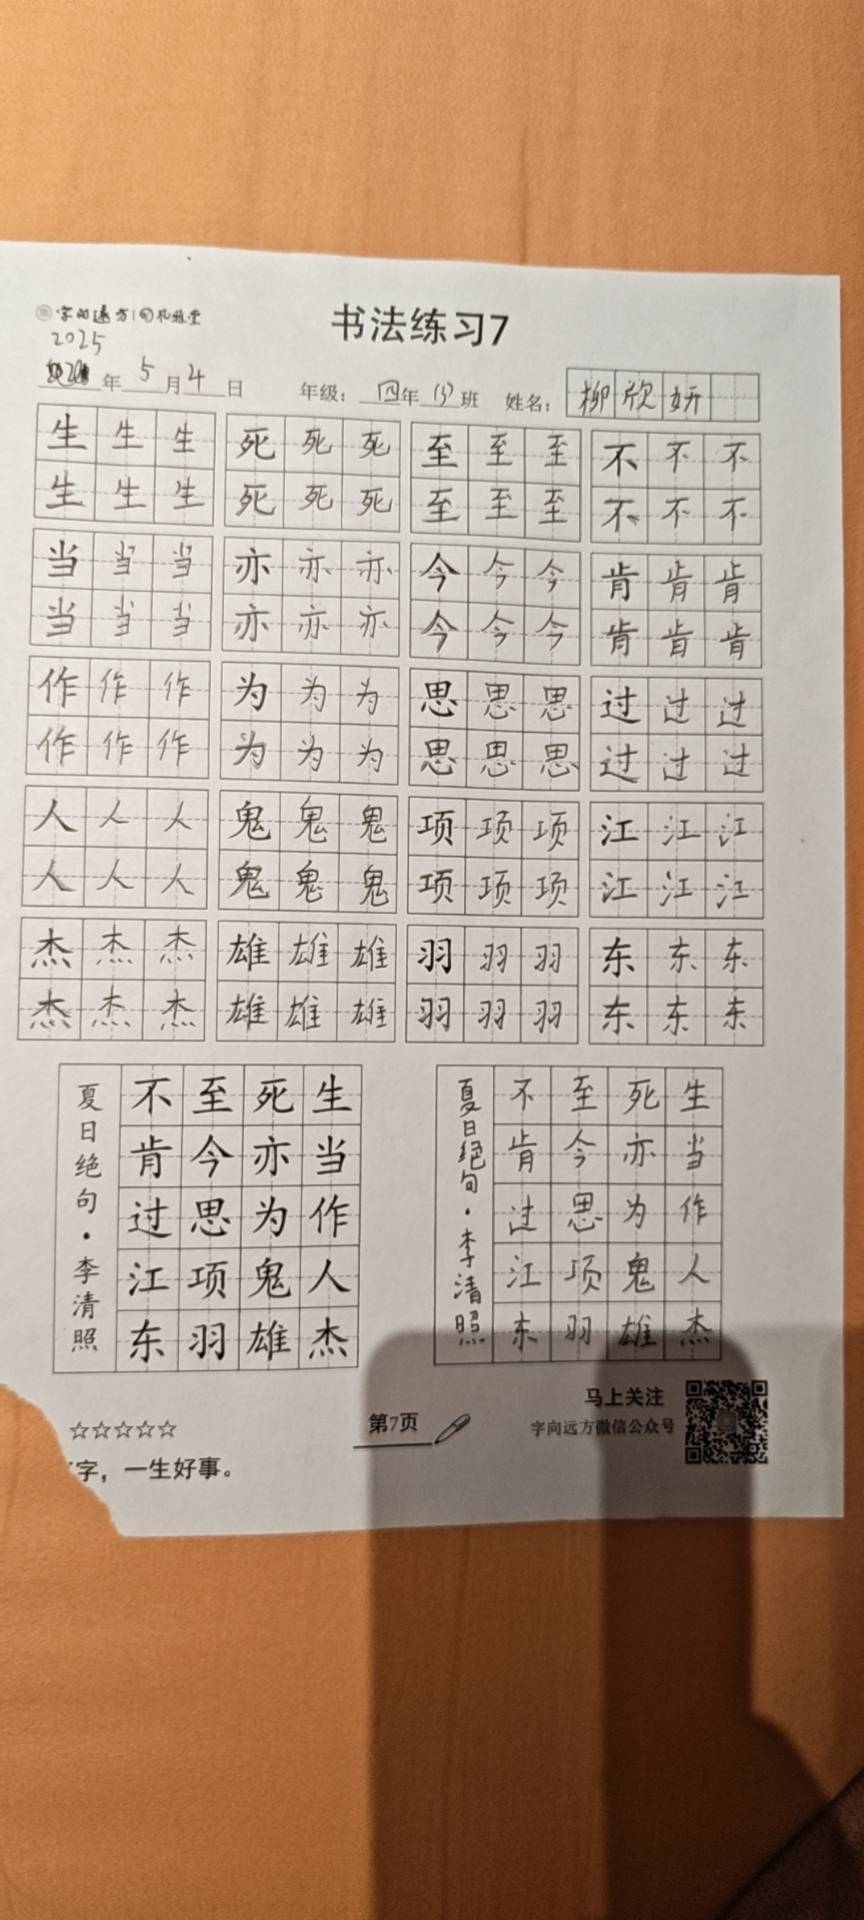 字向远方
书法练习7
2025
年5月4日 年级：四年(3)班 姓名：柳欣妍
生生生 死死死 至至至 不不不
生生生 死死死 至至至 不不不
当当当 亦亦亦 今今今 肯肯肯
当当当 亦亦亦 今今今 肯肯肯
作作作 为为为 思思思 过过过
作作作 为为为 思思思 过过过
人人人 鬼鬼鬼 项项项 江江江
人人人 鬼鬼鬼 项项项 江江江
杰杰杰 雄雄雄 羽羽羽 东东东
杰杰杰 雄雄雄 羽羽羽 东东东
生当作人杰
死亦为鬼雄
至今思项羽
不肯过江东
夏日绝句·李清照
生当作人杰
死亦为鬼雄
至今思项羽
不肯过江东
夏日绝句·李清照
☆☆☆☆☆
字，一生好事。
第7页
马上关注
字向远方微信公众号